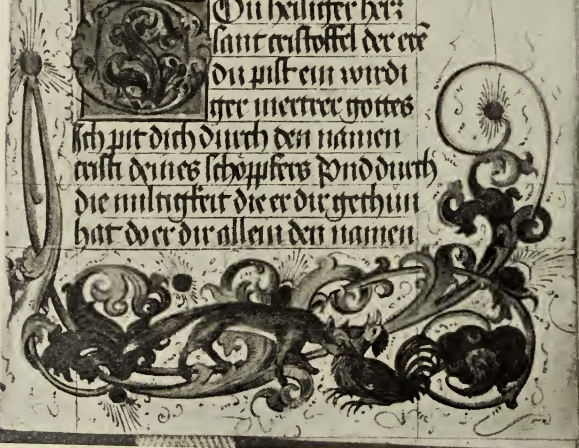 Du heiliger herꝛ
sant cristoffel der ere
du pist ein wirdi
ger mertrer gottes
Ich pit dich durch den namen
cristi deines schöppfers Vnd durch
die miltigkeit die er dir gethun
hat do er dir allein den namen